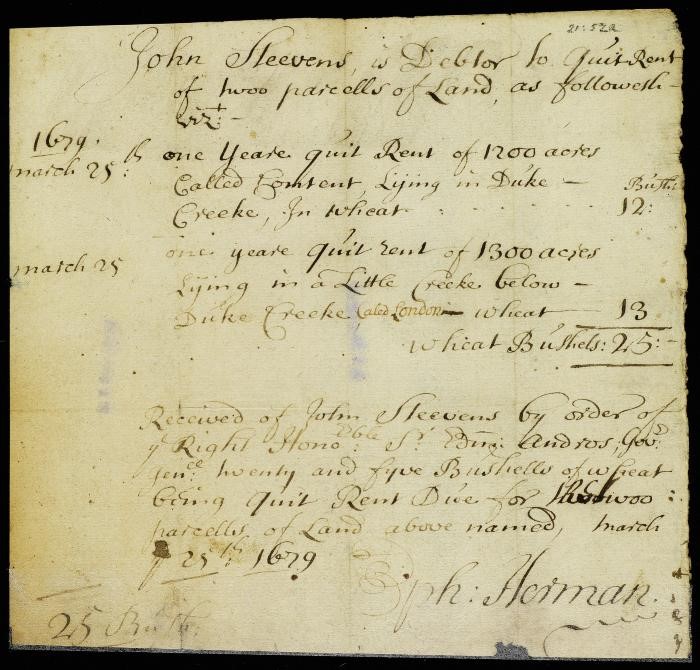 21:52a
John Steevens, is Debtor to Quit Rent
of twoo parcells of Land, as followeth -
vizt: -
1679.
march 25th: one Yeare quit Rent of 1200 acres
Called Content, Lying in Duke -
Creeke, In wheat . . . . . . Bushs 12:
march 25 one yeare quit rent of 1300 acres
Lying in a Little Creeke below -
Duke Creeke Caled London - wheat - 13
wheat Bushels: 25: -
Received of John Steevens by order of
ye Right Honoble: Sr. Edm: Andros, Govr
Genll twenty and fyve Bushells of wheat
being Quit Rent Due for twoo :
parcells of Land above named, march
ye 25th: 1679
Eph: Herman.
25 Bush: